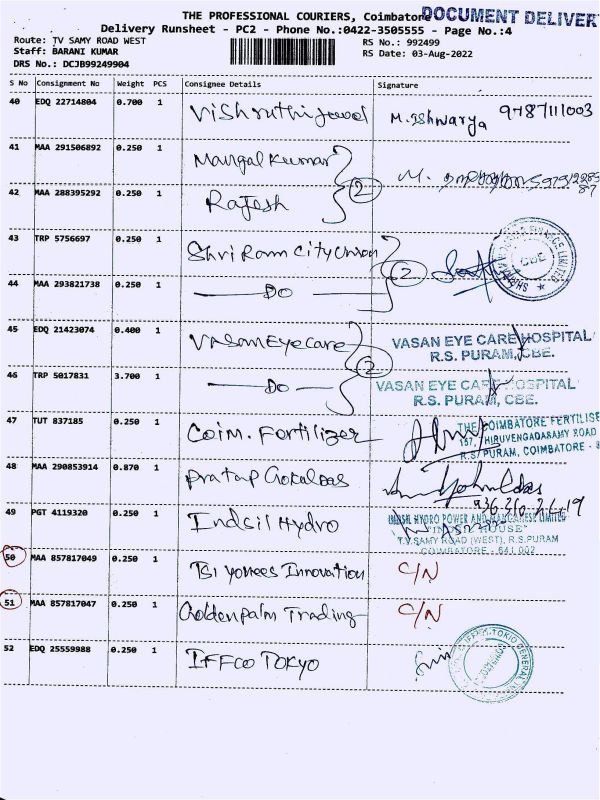 THE PROFESSIONAL COURIERS, Coimbatore
DOCUMENT DELIVER
Delivery Runsheet - PC2 - Phone No.:0422-3505555 - Page No.:4
Route: TV SAMY ROAD WEST
RS No.: 992499
Staff: BARANI KUMAR
RS Date: 03-Aug-2022
DRS No.: DCJB99249904
S No Consignment No Weight PCS Consignee Details Signature
40 EDQ 22714804 0.700 1 Vishruthi Jewel M. Ishwarya 9787111003
41 MAA 291506892 0.250 1 Mangal Kumar
2 M.
42 MAA 288395292 0.250 1 Rajesh
43 TRP 5756697 0.250 1 Shri Ram City Union
2
44 MAA 293821738 0.250 1 DO
45 EDQ 21423074 0.400 1 Vasan Eye Care VASAN EYE CARE HOSPITAL
R.S. PURAM, CBE.
2
46 TRP 5017831 3.700 1 DO VASAN EYE CARE HOSPITAL
R.S. PURAM, CBE.
47 TUT 837185 0.250 1 Coim. Fertilizer THE COIMBATORE FERTILISE
157, THIRUVENGADASAMY ROAD
R.S. PURAM, COIMBATORE -
48 MAA 290853914 0.870 1 Pratap Gokaldas
49 PGT 4119320 0.250 1 Indsil Hydro INDSIL HYDRO POWER AND MANGANESE LIMITED
"INDSIL HOUSE"
T.V.SAMY ROAD (WEST), R.S.PURAM
COIMBATORE - 641 002
50 MAA 857817049 0.250 1 Innovation C/N
51 MAA 857817047 0.250 1 Goldenpalm Trading C/N
52 EDQ 25559988 0.250 1 IFFCO TOKYO